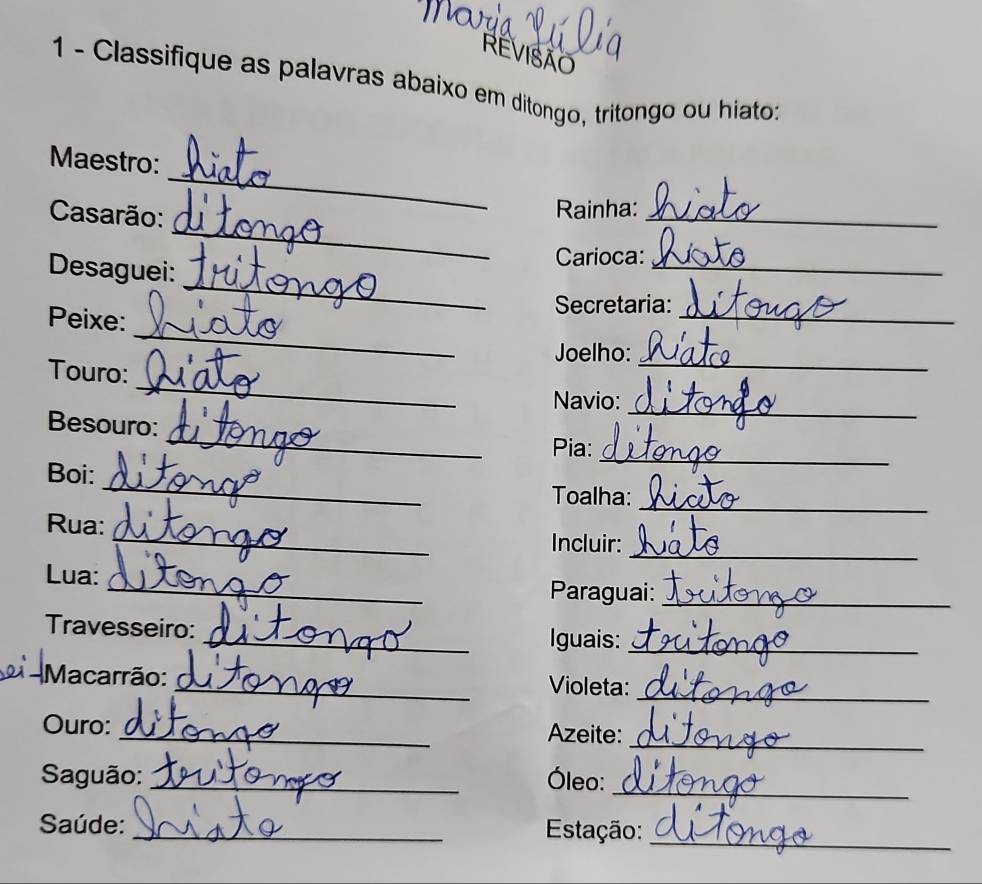 maria Júlia
REVISÃO
1 - Classifique as palavras abaixo em ditongo, tritongo ou hiato:
Maestro: hiato
Casarão: ditongo
Desaguei: tritongo
Peixe: hiato
Touro: hiato
Besouro: ditongo
Boi: ditongo
Rua: ditongo
Lua: ditongo
Travesseiro: ditongo
Macarrão: ditongo
Ouro: ditongo
Saguão: tritongo
Saúde: hiato
Rainha: hiato
Carioca: hiato
Secretaria: ditongo
Joelho: hiato
Navio: ditongo
Pia: ditongo
Toalha: hiato
Incluir: hiato
Paraguai: tritongo
Iguais: tritongo
Violeta: ditongo
Azeite: ditongo
Óleo: ditongo
Estação: ditongo